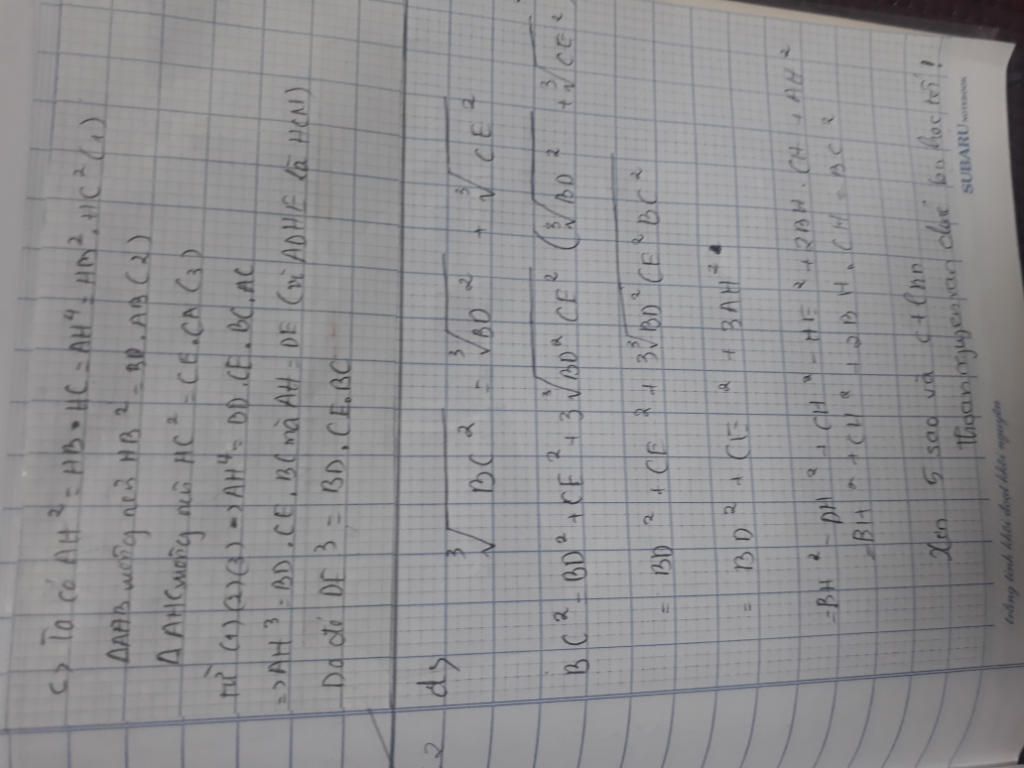 c, Ta có AH² = HB . HC = AH⁴ = HB² . HC² (1)
ΔAHB vuông tại H HB² = BD . AB (2)
ΔAHC vuông tại H HC² = CE . CA (3)
Từ (1)(2)(3) => AH⁴ = BD . CE . BC . AC
=> AH³ = BD . CE . BC mà AH = DE (vì ADHE là HCN)
Do đó DE³ = BD . CE . BC
2 d,
∛BC² = ∛BD² + ∛CE²
BC² = BD² + CE² + 3∛BD²CE² (∛BD² + ∛CE²
= BD² + CE² + 3∛BD²CE²BC²
= BD² + CE² + 3AH²
= BH² - DH² + CH² - HE² + 2BH . CH + AH²
= BH² + CH² + 2BH . CH = BC²
Xin 5 sao và ctlhn
thoannguyenvan chế bo hoc tôi!
SUBARU NOTEBOOK